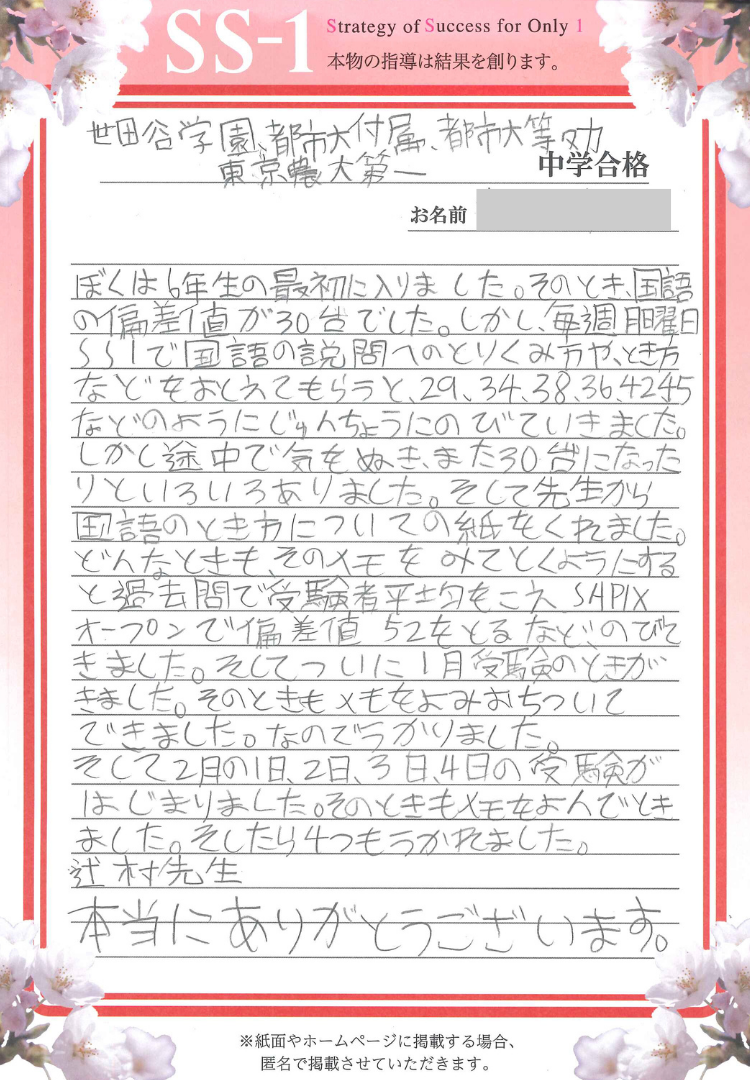 SS-1
Strategy of Success for Only 1
本物の指導は結果を創ります。
世田谷学園、都市大付属、都市大等々力
東京農大第一
中学合格
お名前
ぼくは6年生の最初に入りました。そのとき、国語
の偏差値が30台でした。しかし、毎週月曜日
SS1で国語の説問へのとりくみ方や、とき方
などをおしえてもらうと、29、34、38、36、42、45
などのようにじゅんちょうにのびていきました。
しかし途中で気をぬき、また30台になった
りといろいろありました。そして先生から
国語のときかたについての紙をくれました。
どんなときも、そのメモをみてとくようにする
と過去問で受験者平均をこえ SAPIX
オープンで偏差値 52をとるなど、のびて
きました。そしてついに1月受験のときが
きました。そのときもメモをよみおちついて
できました。なのでうかりました。
そして2月の1日、2日、3日、4日の受験が
はじまりました。そのときもメモをよんでとき
ました。そしたら4つもうかれました。
辻村先生
本当にありがとうございます。
※紙面やホームページに掲載する場合、
匿名で掲載させていただきます。